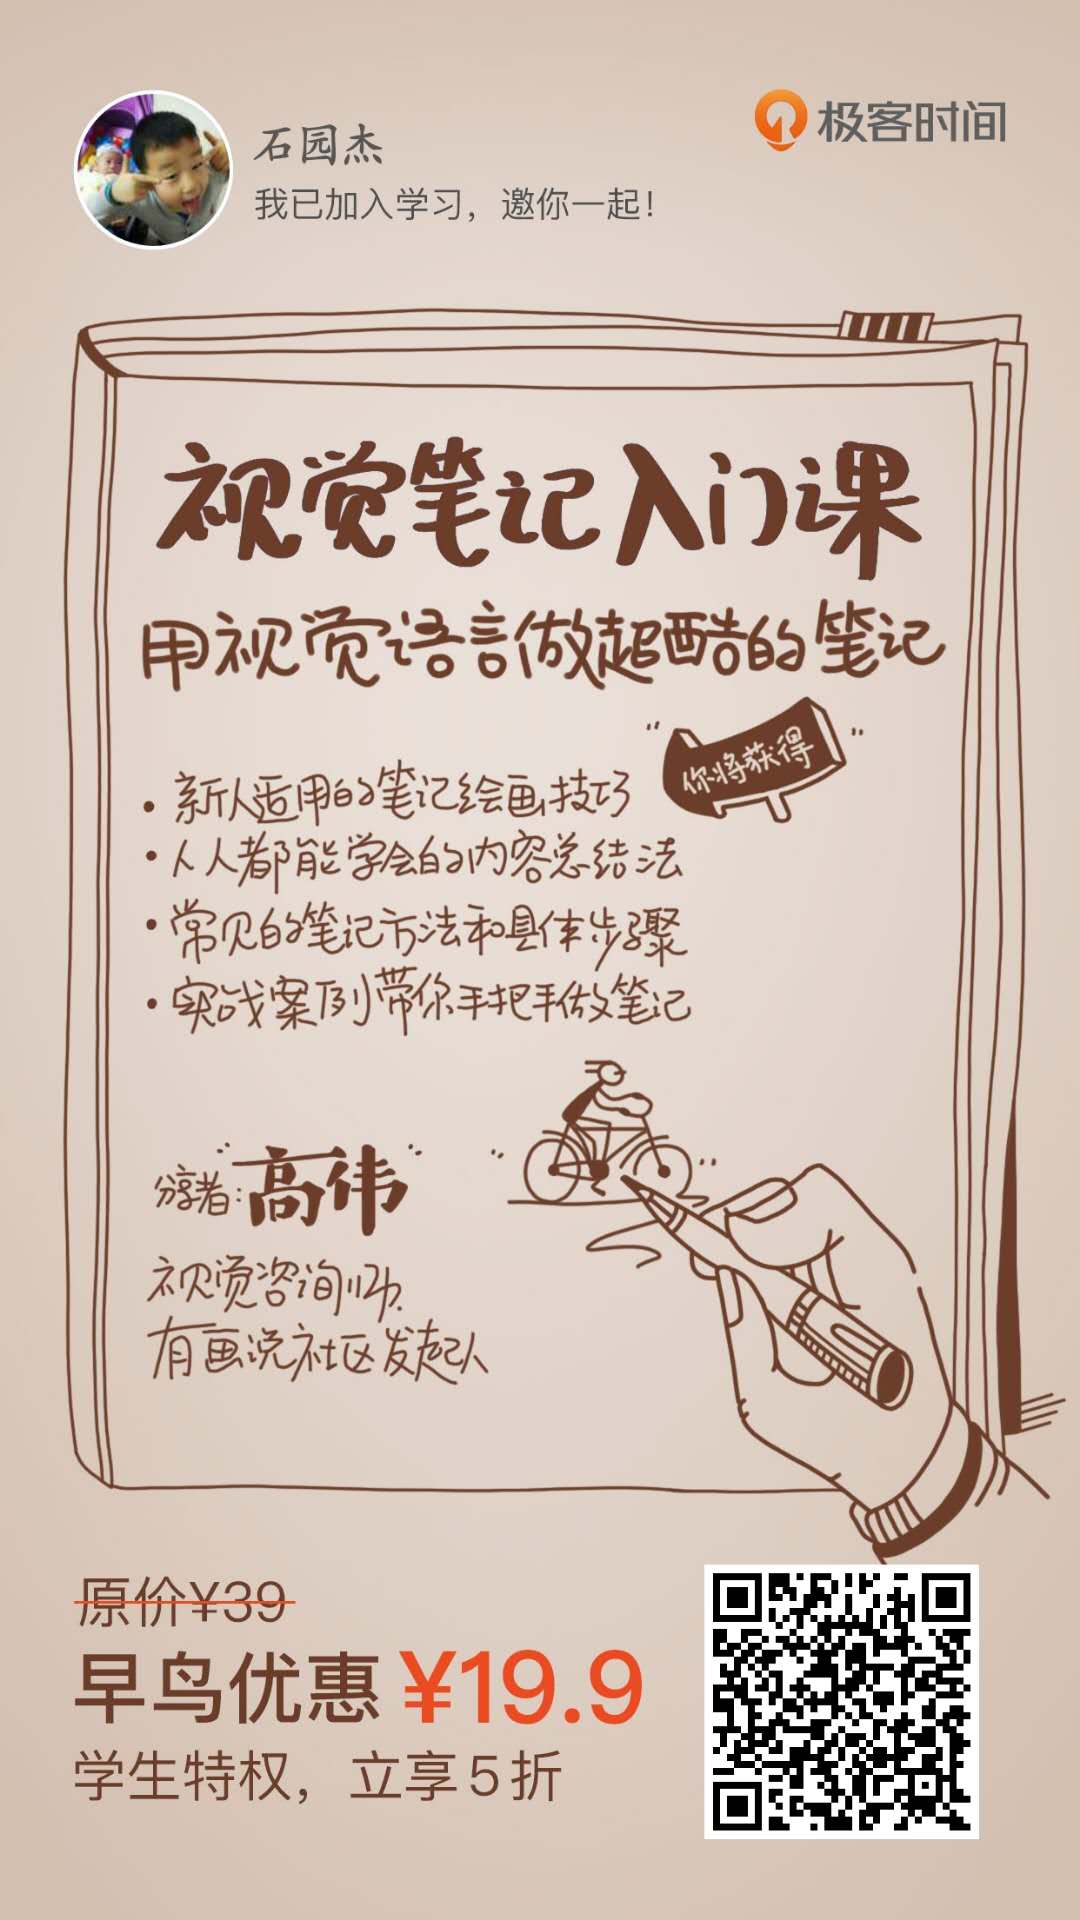 石园杰
极客时间
我已加入学习，邀你一起！
视觉笔记入门课
用视觉语言做超酷的笔记
你将获得
· 新人适用的笔记绘画技巧
· 人人都能学会的内容总结法
· 常见的笔记方法和具体步骤
· 实战案例带你手把手做笔记
分享者：高伟
视觉咨询师，
有画说社区发起人
原价¥39
早鸟优惠 ¥19.9
学生特权，立享5折